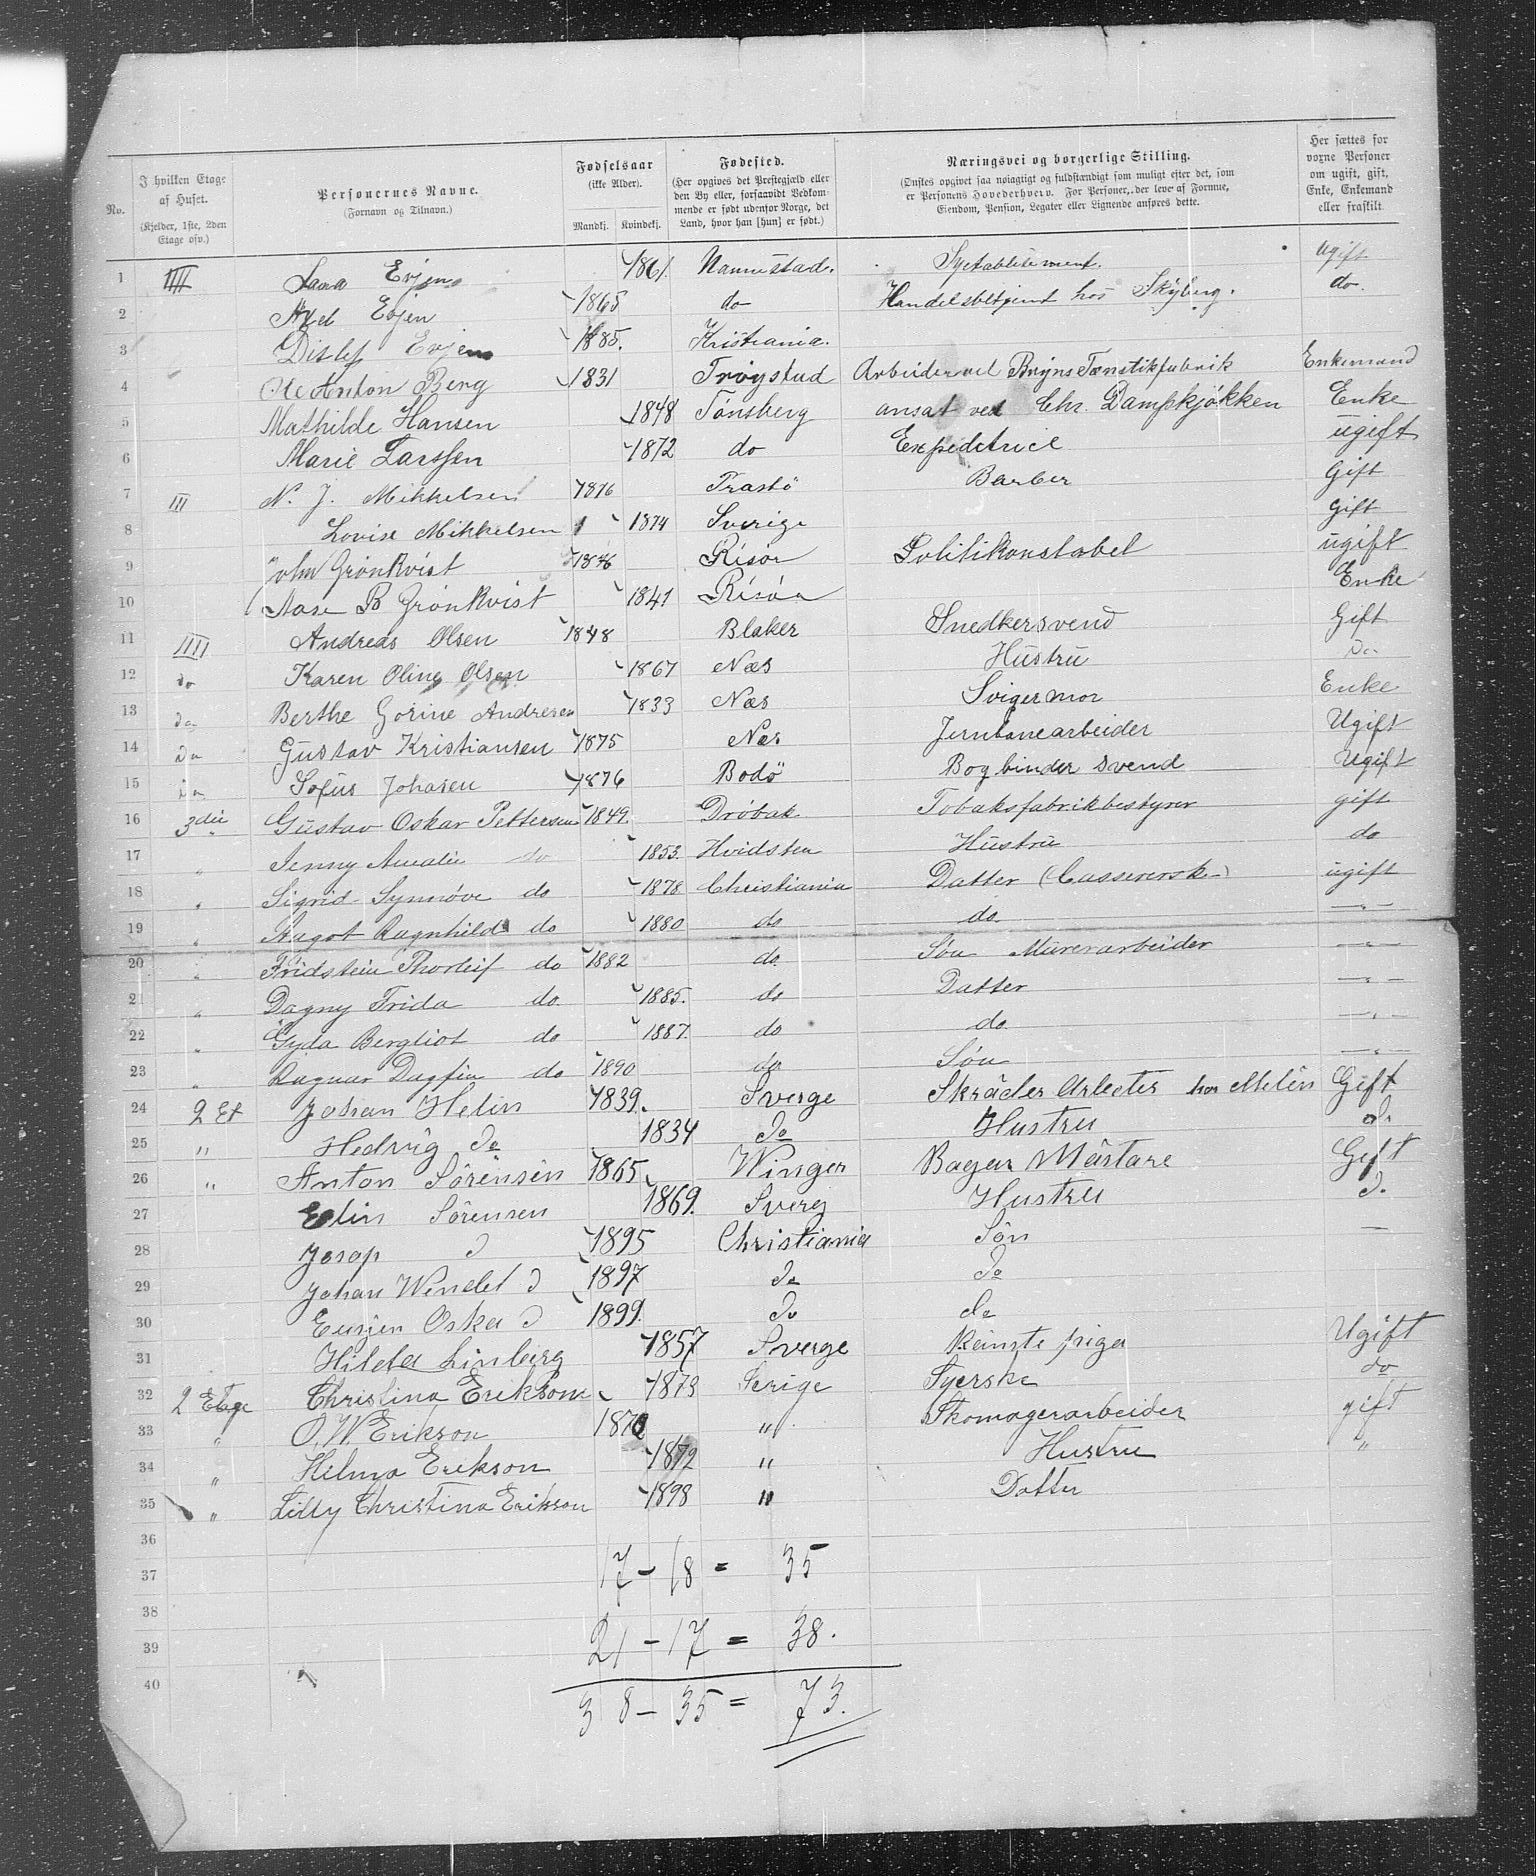 No. | I hvilken Etage af Huset. (Kjelder, 1ste, 2den Etage osv.) | Personernes Navne. (Fornavn og Tilnavn.) | Fødselsaar (ikke Alder). Mandkj. Kvindekj. | Fødested. (Her opgives det Prestegjæld eller den By eller, forsaavidt Vedkommende er født udenfor Norge, det Land, hvor han [hun] er født.) | Næringsvei og borgerlige Stilling. (Ønskes opgivet saa nøiagtigt og fuldstændigt som muligt efter det, som er Personens Hovederhverv. For Personer, der leve af Formue, Eiendom, Pension, Legater eller Lignende anføres dette. | Her sættes for voxne Personer om ugift, gift, Enke, Enkemand eller fraskilt
1 IIII Evjen 1861. Nannestad. Syetablisement. Ugift
2 Axel Evjen 1865 do Handelsbetjent hos Skyberg. do.
3 Ditlef Evjen 1885. Kristiania.
4 Ole Anton Berg 1831 Trøgstad Arbeider ved Bryns Tænstikfabrik Enkemand
5 Mathilde Hansen 1848 Tønsberg ansat ved Chr. Dampkjøkken Enke
6 Marie Larssen 1872 do Expeditrice ugift
7 III N. J. Mikkelsen 1876 Barber Gift
8 Lovise Mikkelsen 1874 Sverige Gift
9 John Grønkvist Risør Politikonstabel ugift
10 Aase B Grønkvist 1841 Risør Enke
11 IIII Andreas Olsen 1848 Blaker Snedkersvend Gift
12 do Karen Oline Olsen 1867 Næs Hustru do
13 do Berthe Gorine Andresen 1833 Næs Svigermor Enke
14 do Gustav Kristiansen 1875 Næs Jernbanearbeider Ugift
15 do Sofus Johasen 1876 Bodø Bogbinder svend Ugift
16 3die Gustav Oskar Pettersen 1849. Drøbak Tobaksfabrikbestyrer gift
17 " Jenny Amalie do 1853. Hvidsten Hustru do
18 " Sigrid Synnøve do 1878 Christiania Datter ugift
19 " Aagot Ragnhild do 1880 do do. — " —
20 " Fridstein Thorleif do 1882 do. Søn Murerarbeider — " —
21 " Dagny Frida do. 1885. do Datter — " —
22 " Gyda Bergliot do 1887. do do — " —
23 " Ragnar Dagfin do 1890 do Søn — " —
24 2 Et Johan Helin 1839. Sverge Skräder Arbeter hos Melin Gift
25 " Hedvig do 1834 do Hustru do
26 " Anton Sörensen 1865 Winger Bagar Mästare Gift
27 Elin Sörensen 1869. Sverg Hustru d.
28 Josap d 1895 Christiania Sön —
29 Johan Wendel d 1897 do do
30 Eusjen Oskar d 1899. do do
31 Hilda Linberg 1857 Sverge piga Ugift
32 2 Etage Christina Erikson 1873 Serige Syerske do
33 " O. W. Erikson " Skomagerarbeider gift
34 " Hilma Erikson 1872 " Hustru "
35 " Lilly Christina Erikson 1898 " Datter
36
37 17 – 18 = 35
38
39 21 – 17 = 38.
40 38 – 35 = 73.